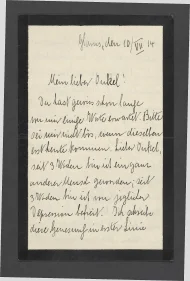 den 10/VII 14
Mein lieber Onkel!
Du hast gewiss schon lange
von mir einige Worte erwartet. Bitte
sei mir nicht bös, wenn dieselben
erst heute kommen. Lieber Onkel,
seit 3 Wochen bin ich ein ganz
anderer Mensch geworden, seit
3 Wochen bin ich von jeglicher
Depression befreit. Ich schreibe
diese Genesung in erster Linie